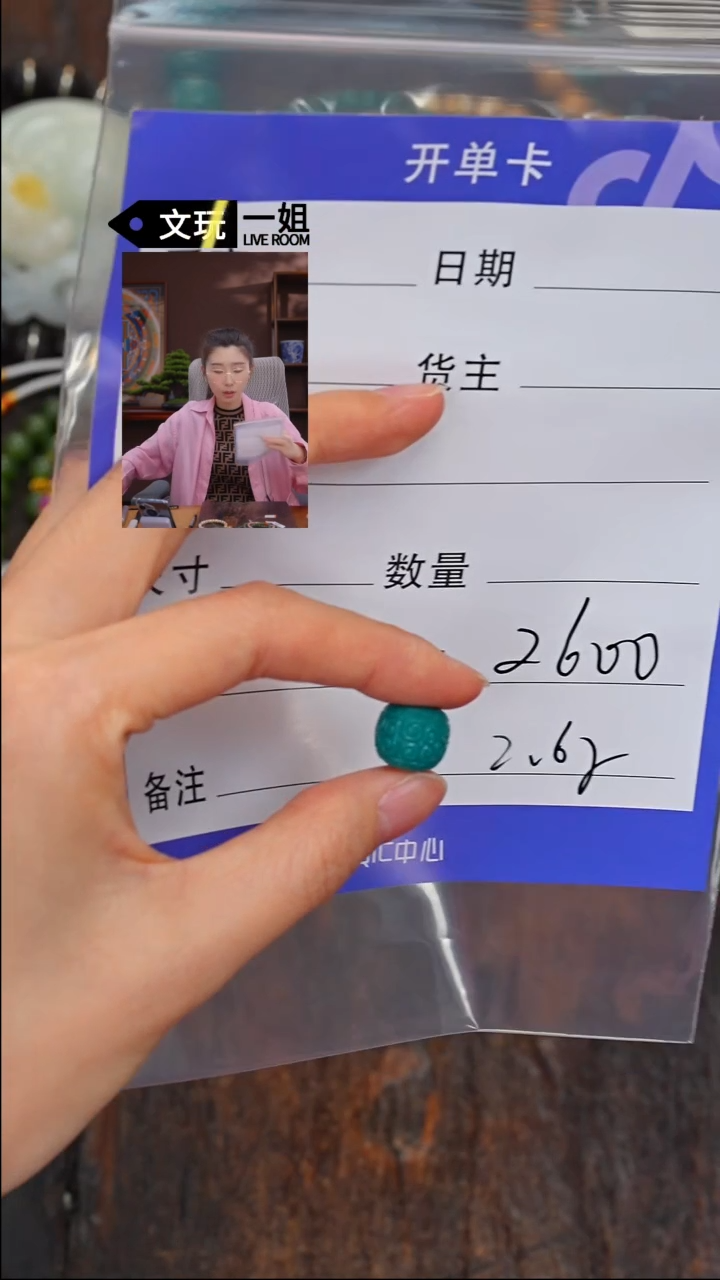 开单卡
文玩一姐
LIVE ROOM
日期
货主
尺寸
数量
2600
备注
2.6g
QIC中心